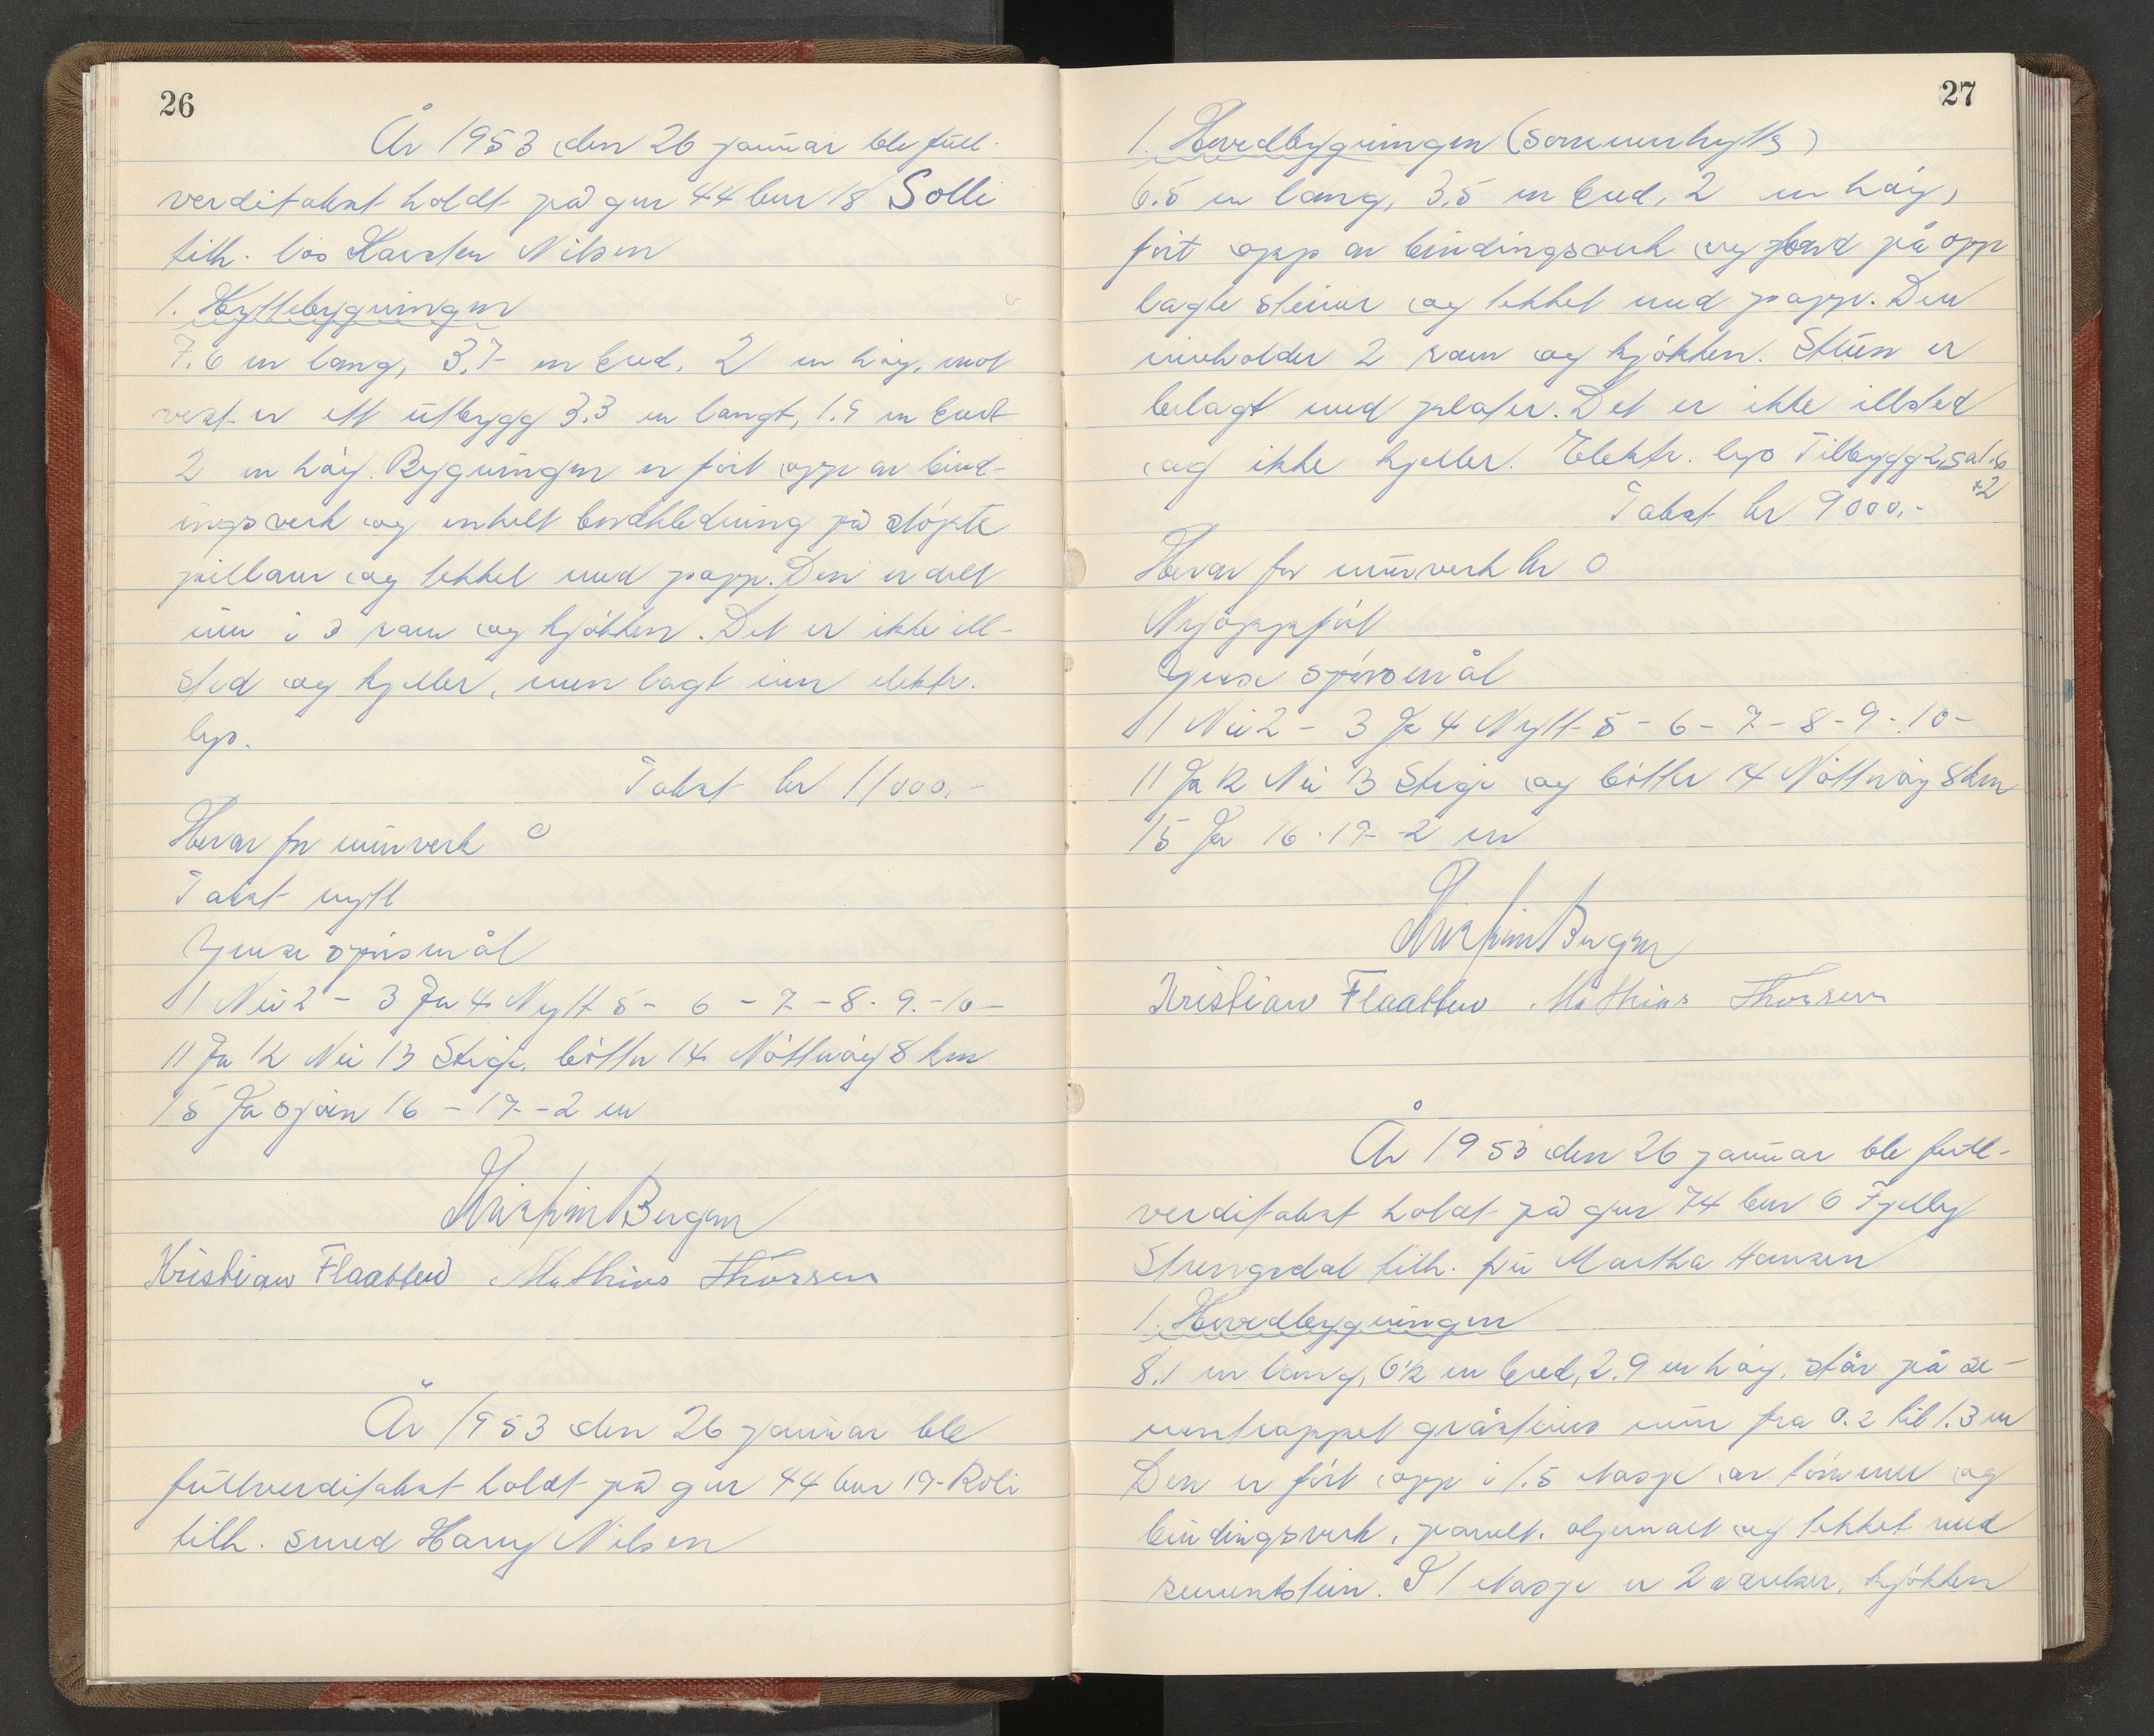 26
År 1953 den 26 januar ble full-
verditakst holdt på gnr 44 bnr 18 Solli
tilh. Karsten Nilsen
1. Hyttebygningen
7.6 m lang, 3.7 m bred, 2 m høy, mot
vest er ett utbygg 3.3 m langt, 1.9 m bredt
2 m høy. Bygningen er ført opp av bind-
ingsverk og enkelt bordkledning på støpte
pillarer og tekket med papp. Den er delt
inn i 3 rom og kjøkken. Det er ikke ill-
sted og kjeller, men lagt inn elektr.
lys.
Takst kr 11000.-
Herav for murverk 0
Takst nytt
Ymse spørsmål
1 Nei 2 - 3 Ja 4 Nytt 5 - 6 - 7 - 8 - 9 - 10 -
11 Ja 12 Nei 13 Stige, bøtter 14 Nøtterøy 8 km
15 Ja sjøen 16 - 17 - 2 m
Bergan
Kristian Flaatten Mathias Thorsen
År 1953 den 26 januar ble
fullverditakst holdt på gnr 44 bnr 17 Roli
tilh. smed Harry Nilsen
27
1. Hovedbygningen (sommerhytte)
6.5 m lang, 3.5 m bred, 2 m høy,
ført opp av bindingsverk og på opp
lagte steiner og tekket med papp. Den
inneholder 2 rom og kjøkken. Stuen er
belagt med plater. Det er ikke illsted
og ikke kjeller. Elektr. lys Tilbygg 2,5 x 1.6
x2
Takst kr 9000.-
Herav for murverk kr 0
Nyoppført
Ymse spørsmål
1 Nei 2 - 3 Ja 4 Nytt 5 - 6 - 7 - 8 - 9 - 10 -
11 Ja 12 Nei 13 Stige og bøtter 14 Nøtterøy 8 km
15 Ja 16 - 17 - 2 m
Bergan
Kristian Flaatten Mathias Thorsen
År 1953 den 26 januar ble full-
verditakst holdt på gnr 74 bnr 6 Fjelly
Strengsdal tilh. fru Martha Hansen
1. Hovedbygningen
8.1 m lang, 6½ m bred, 2.9 m høy, står på se-
mentrappet gråsteins mur fra 0.2 til 1.3 m
Den er ført opp i 1.5 etasje av tømmer og
bindingsverk, panelt, oljemalt og tekket med
sementstein. I 1 etasje er 2 værelser, kjøkken